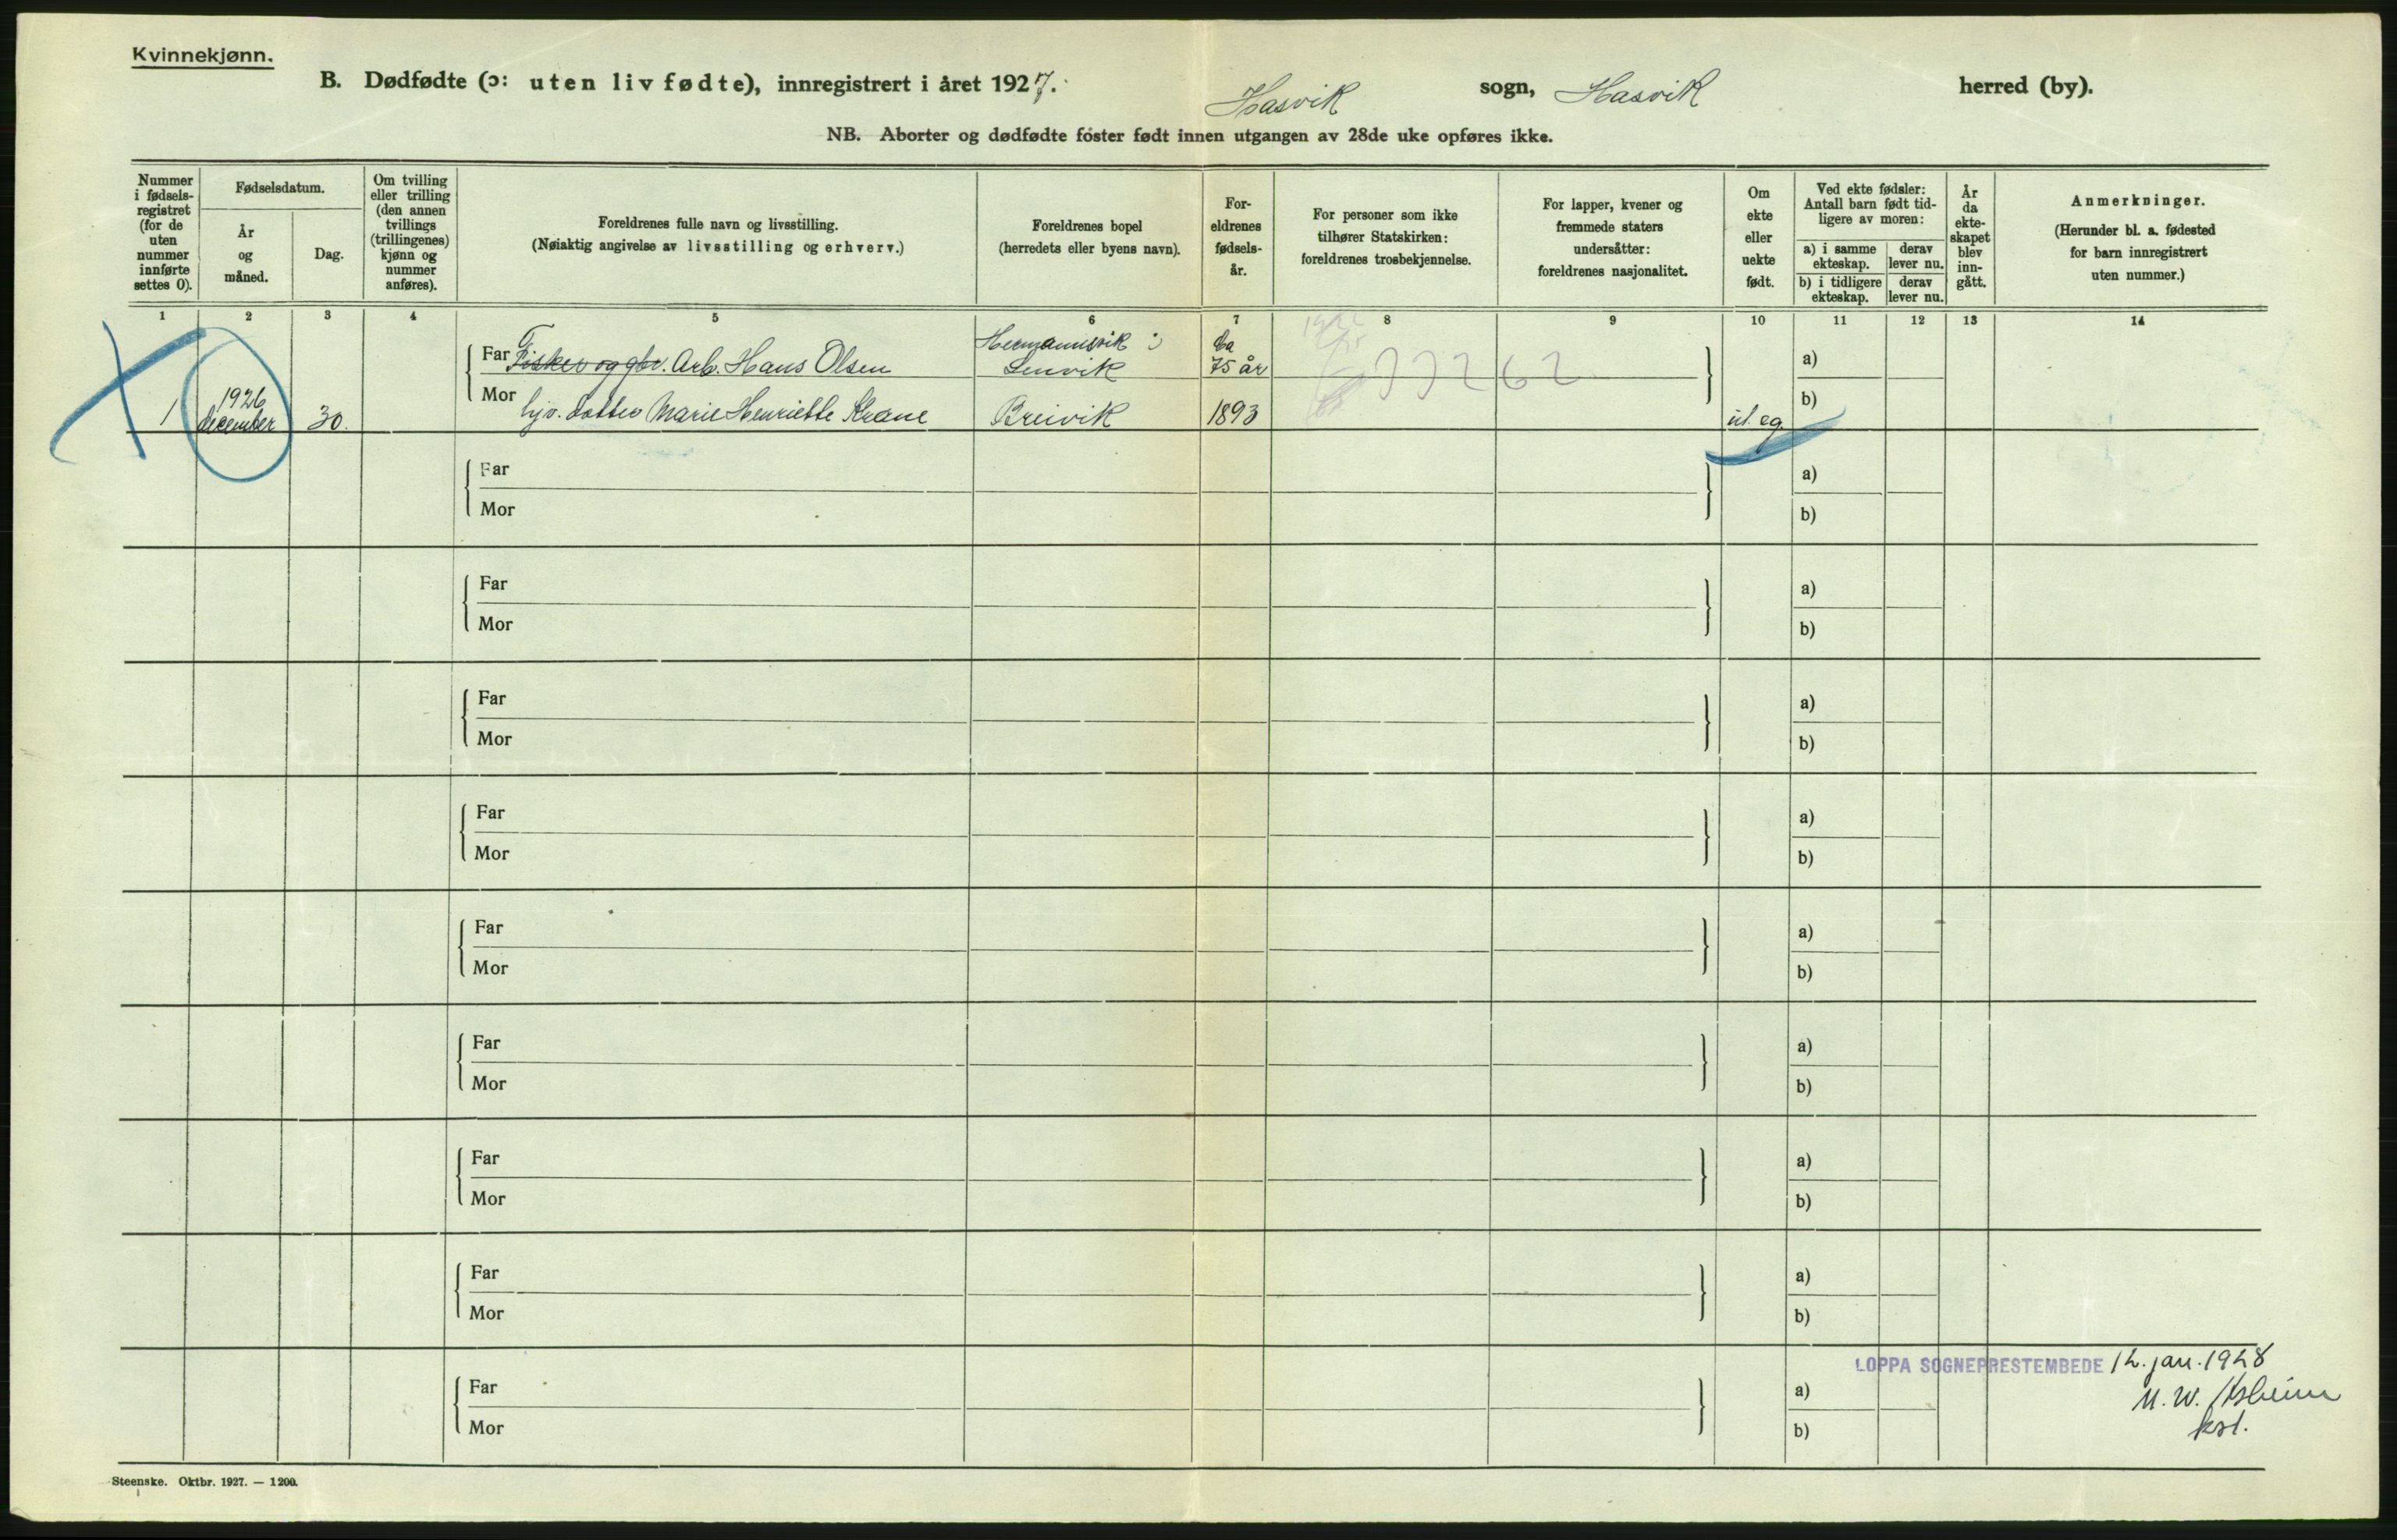 Kvinnekjønn.
B. Dødfødte (ɔ: uten liv fødte), innregistrert i året 1927. Hasvik sogn, Hasvik herred (by).
NB. Aborter og dødfødte foster født innen utgangen av 28de uke opføres ikke.
Nummer i fødsels-registret (for de uten nummer innførte settes 0).
Fødselsdatum.
År og måned.
Dag.
Om tvilling eller trilling (den annen tvillings (trillingenes) kjønn og nummer anføres).
Foreldrenes fulle navn og livsstilling.
(Nøiaktig angivelse av livsstilling og erhverv.)
Foreldrenes bopel
(herredets eller byens navn).
For-eldrenes fødsels-år.
For personer som ikke tilhører Statskirken: foreldrenes trosbekjennelse.
For lapper, kvener og fremmede staters undersåtter: foreldrenes nasjonalitet.
Om ekte eller uekte født.
Ved ekte fødsler: Antall barn født tid-ligere av moren:
a) i samme ekteskap.
derav lever nu.
b) i tidligere ekteskap.
derav lever nu.
År da ekte-skapet blev inn-gått.
Anmerkninger.
(Herunder bl. a. fødested for barn innregistrert uten nummer.)
1 2 3 4 5 6 7 8 9 10 11 12 13 14
Far Fisker og gbr. Arb. Hans Olsen Hermannsvik i Lenvik ca 75 år a)
1 1926 december 30. Mor hjv. datter Marie Henriette Krane Breivik 1893 33262 u. eg. b)
Far a)
Mor b)
Far a)
Mor b)
Far a)
Mor b)
Far a)
Mor b)
Far a)
Mor b)
Far a)
Mor b)
Far a)
Mor b)
Far a)
Mor b)
LOPPA SOGNEPRESTEMBEDE 12. jan. 1928
Far a)
Mor b)
kst.
Steenske. Oktbr. 1927. — 1200.